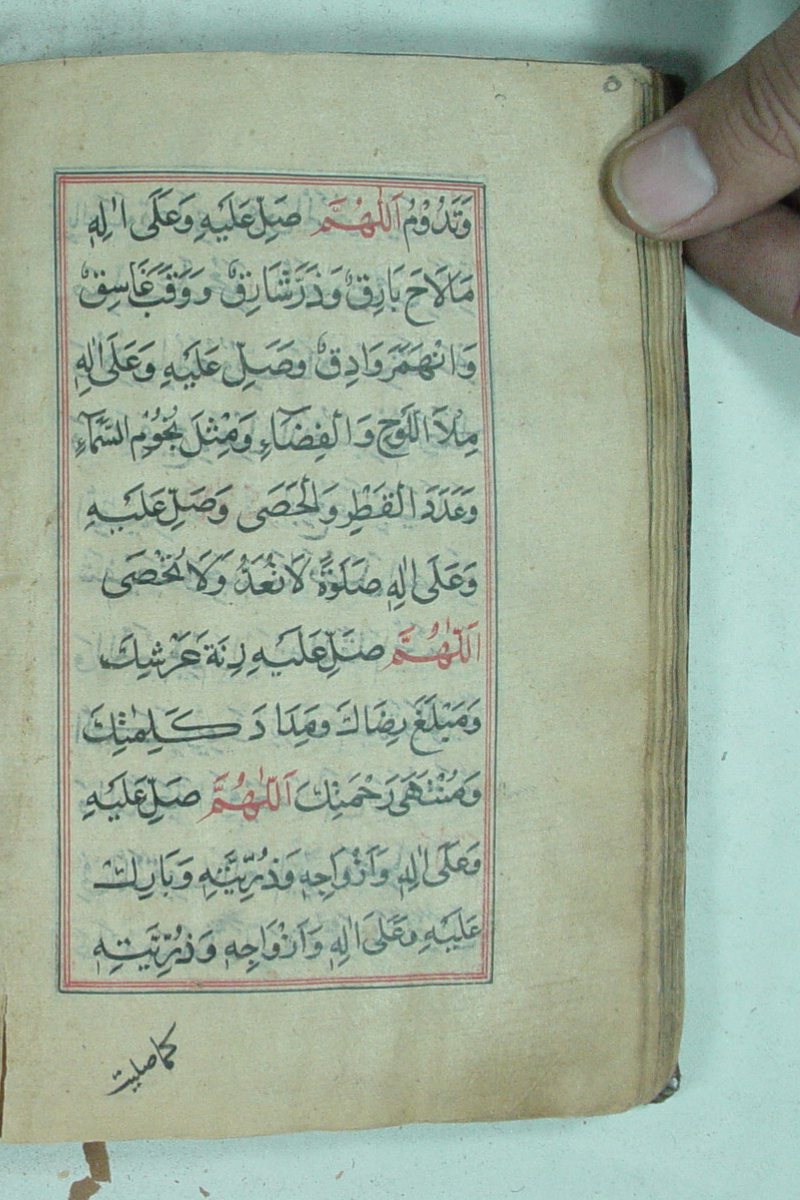 ٥
وَتَدُوْمُ اَللّٰهُمَّ صَلِّ عَلَيْهِ وَعَلَى اٰلِهٖ
مَا لَاحَ بَارِقٌ وَذَرَّ شَارِقٌ وَوَقَبَ غَاسِقٌ
وَانْهَمَرَ وَادِقٌ وَصَلِّ عَلَيْهِ وَعَلَى اٰلِهٖ
مِلْاَ اللَّوْحِ وَالْفِضَاءِ وَمِثْلَ نُجُوْمِ السَّمَآءِ
وَعَدَدَ الْقَطْرِ وَالْحَصَى وَصَلِّ عَلَيْهِ
وَعَلَى اٰلِهٖ صَلٰوةً لَا تُعَدُّ وَلَا تُحْصَى
اَللّٰهُمَّ صَلِّ عَلَيْهِ زِنَةَ عَرْشِكَ
وَمَبْلَغَ رِضَاكَ وَمِدَادَ كَلِمٰتِكَ
وَمُنْتَهَى رَحْمَتِكَ اَللّٰهُمَّ صَلِّ عَلَيْهِ
وَعَلَى اٰلِهٖ وَاَزْوَاجِهٖ وَذُرِّيَّتِهٖ وَبَارِكْ
عَلَيْهِ وَعَلَى اٰلِهٖ وَاَزْوَاجِهٖ وَذُرِّيَّتِهٖ
كما صليت